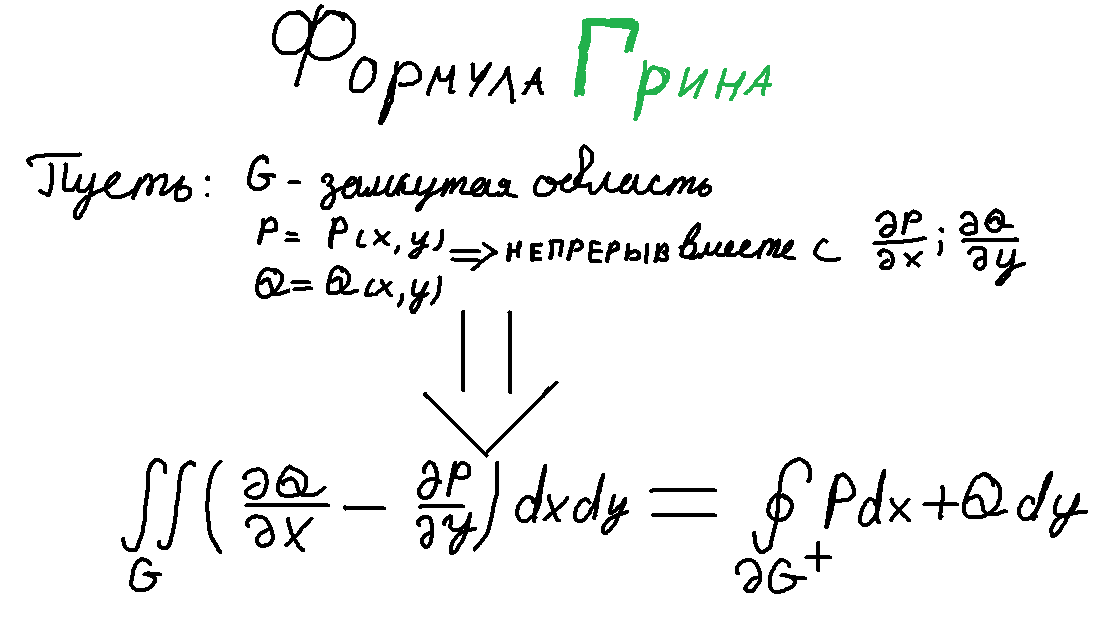 Формула Грина
Пусть: G - замкутая область
P = P(x, y)
Q = Q(x, y)
=> непрерыв вместе с ∂P/∂x ; ∂Q/∂y
∬_G (∂Q/∂x − ∂P/∂y) dxdy = ∮_∂G⁺ Pdx + Qdy